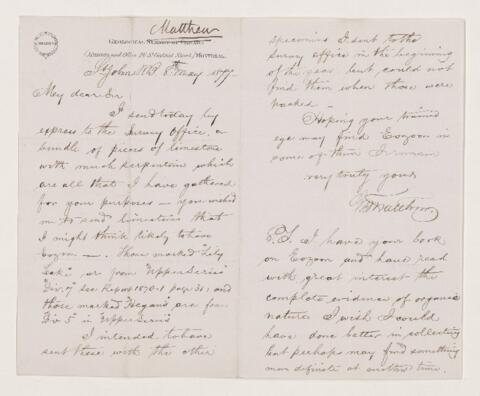 Matthew
GEOLOGICAL SURVEY OF CANADA
St John N.B. 8th May 1877.
My dear Sir,
I send today by
express to the Survey Office, a
bundle of pieces of limestone
with much serpentine which
are all that I have gathered
for your purposes — you wished
me to send limestones that
I might think likely to have
Eozoon —. Those marked "Lily
Lake" are from "Upper Series"
"Div. 
those marked are from
Div 5 in "Upper Series"
I intended to have
sent these with the other
specimens I sent to the
Survey office in the beginning
of the year but could not
find them when those were
packed —
Hoping your trained
eye may find Eozoon in
some of them I remain
very truly yours
Matthew
P.S. I have your book
on Eozoon and have read
with great interest the
complete evidence of organic
nature I wish I could
have done better in collecting
but perhaps may find something
more definite at another time.